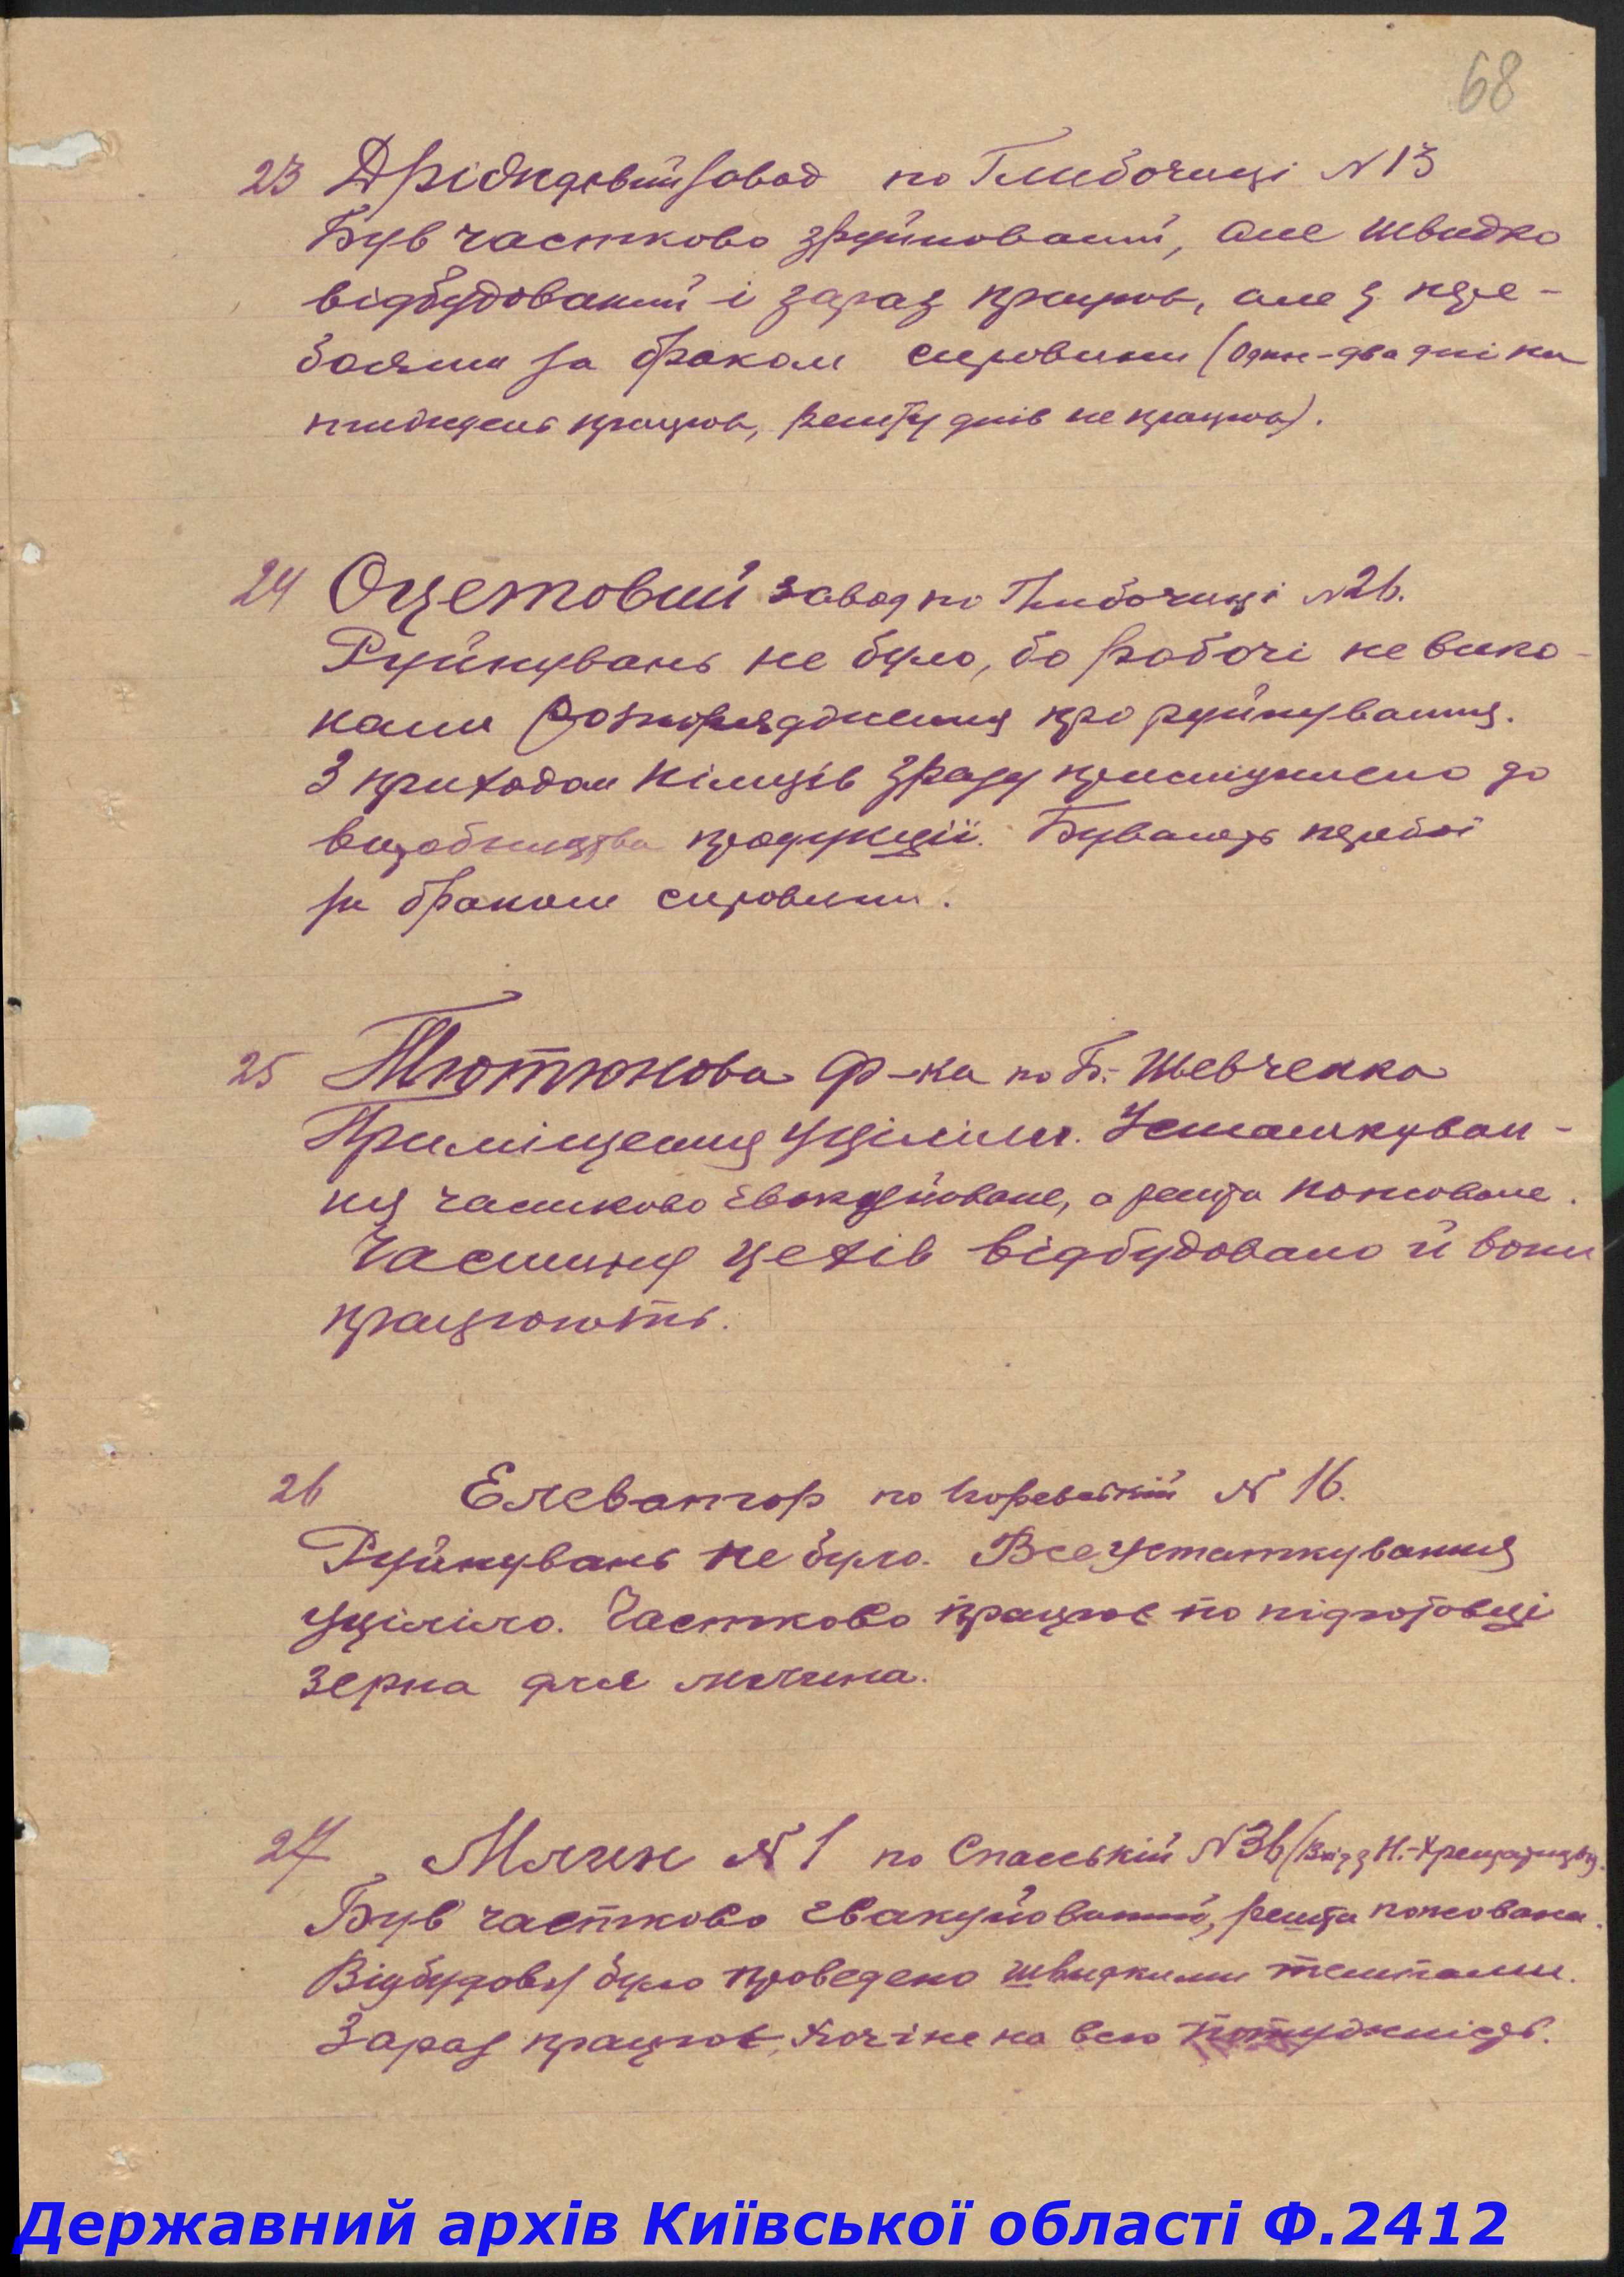 68
23 Дріжджовий завод по Глибочиці №13
Був частково зруйнований, але швидко
відбудований і зараз працює, але з пере-
боями за браком сировини (один-два дні на
тиждень працює, решту днів не працює).
24 Оцетовий завод по Глибочиці №26.
Руйнувань не було, бо робочі не вико-
нали розпорядження про руйнування.
З приходом німців зразу приступлено до
виробництва продукції. Бувають перебої
за браком сировини.
25 Тютюнова ф-ка по Б. Шевченка
Приміщення уціліли. Устаткуван-
ня частково евакуйоване, а решта поковане.
Частину цехів відбудовано й вони
працюють.
26 Елеватор по №16.
Руйнувань не було. Все устаткування
уціліло. Частково працює по підготовці
зерна для млина.
27 Млин №1 по Спаській №36 (Вхід з Н.-Хрещатицьку).
Був частково евакуйований, решта
Відбудову було проведено швидкими темпами.
Зараз працює, хоч і не на всю потужність.
Державний архів Київської області Ф.2412